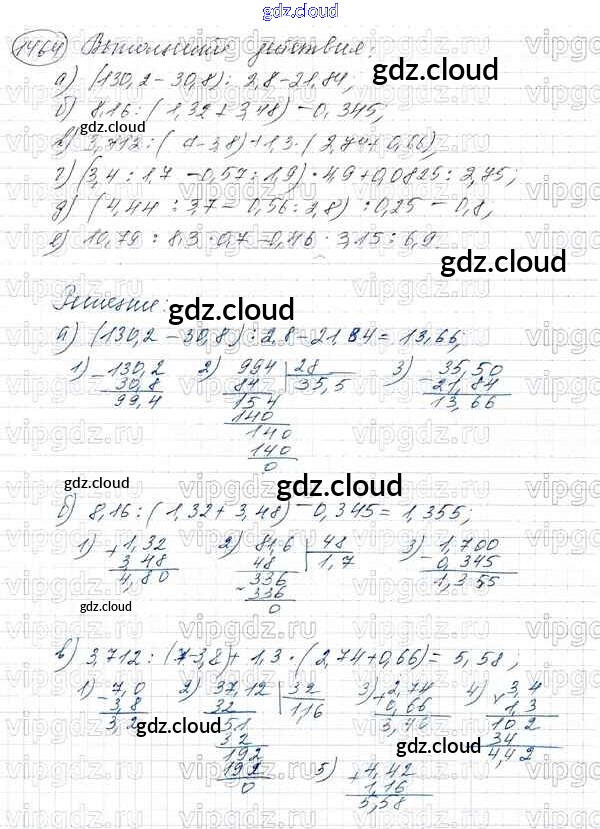 gdz.cloud
1464 Выполните действия:
а) (130,2-30,8) : 2,8-21,84;
gdz.cloud
б) 8,16 : (1,32+3,48) - 0,345;
gdz.cloud
в) 3,712 : ( -3,8)+1,3 · (2,74+0,66)
г) (3,4 : 1,7 - 0,57 : 1,9) · 4,9+0,0825 : 2,75;
д) (4,44 : 3,7 - 0,56 : 2,8) : 0,25 - 0,8;
е) 10,79 : 8,3 · 0,7 - 0,46 · 3,15 : 6,9
gdz.cloud
Решение:
gdz.cloud
а) (130,2 - 30,8) : 2,8 - 21,84 = 13,66;
1) 130,2 2) 994 |28 3) 35,50
- 30,8 84 35,5 - 21,84
99,4 154 13,66
140
140
140
0
gdz.cloud
gdz.cloud
б) 8,16 : (1,32 + 3,48) - 0,345 = 1,355;
1) + 1,32 2) 81,6 |48 3) 1,700
3,48 48 1,7 - 0,345
4,80 336 1,355
- 336
0
gdz.cloud
gdz.cloud
в) 3,712 : (7-3,8) + 1,3 · (2,74+0,66) = 5,58;
1) - 7,0 2) 37,12 |32 3) + 2,74 4) × 3,4
3,8 32 1,16 0,66 1,3
3,2 51 3,40 102
32 34
192 4,42
192
0
gdz.cloud
5) + 4,42
1,16
5,58
gdz.cloud